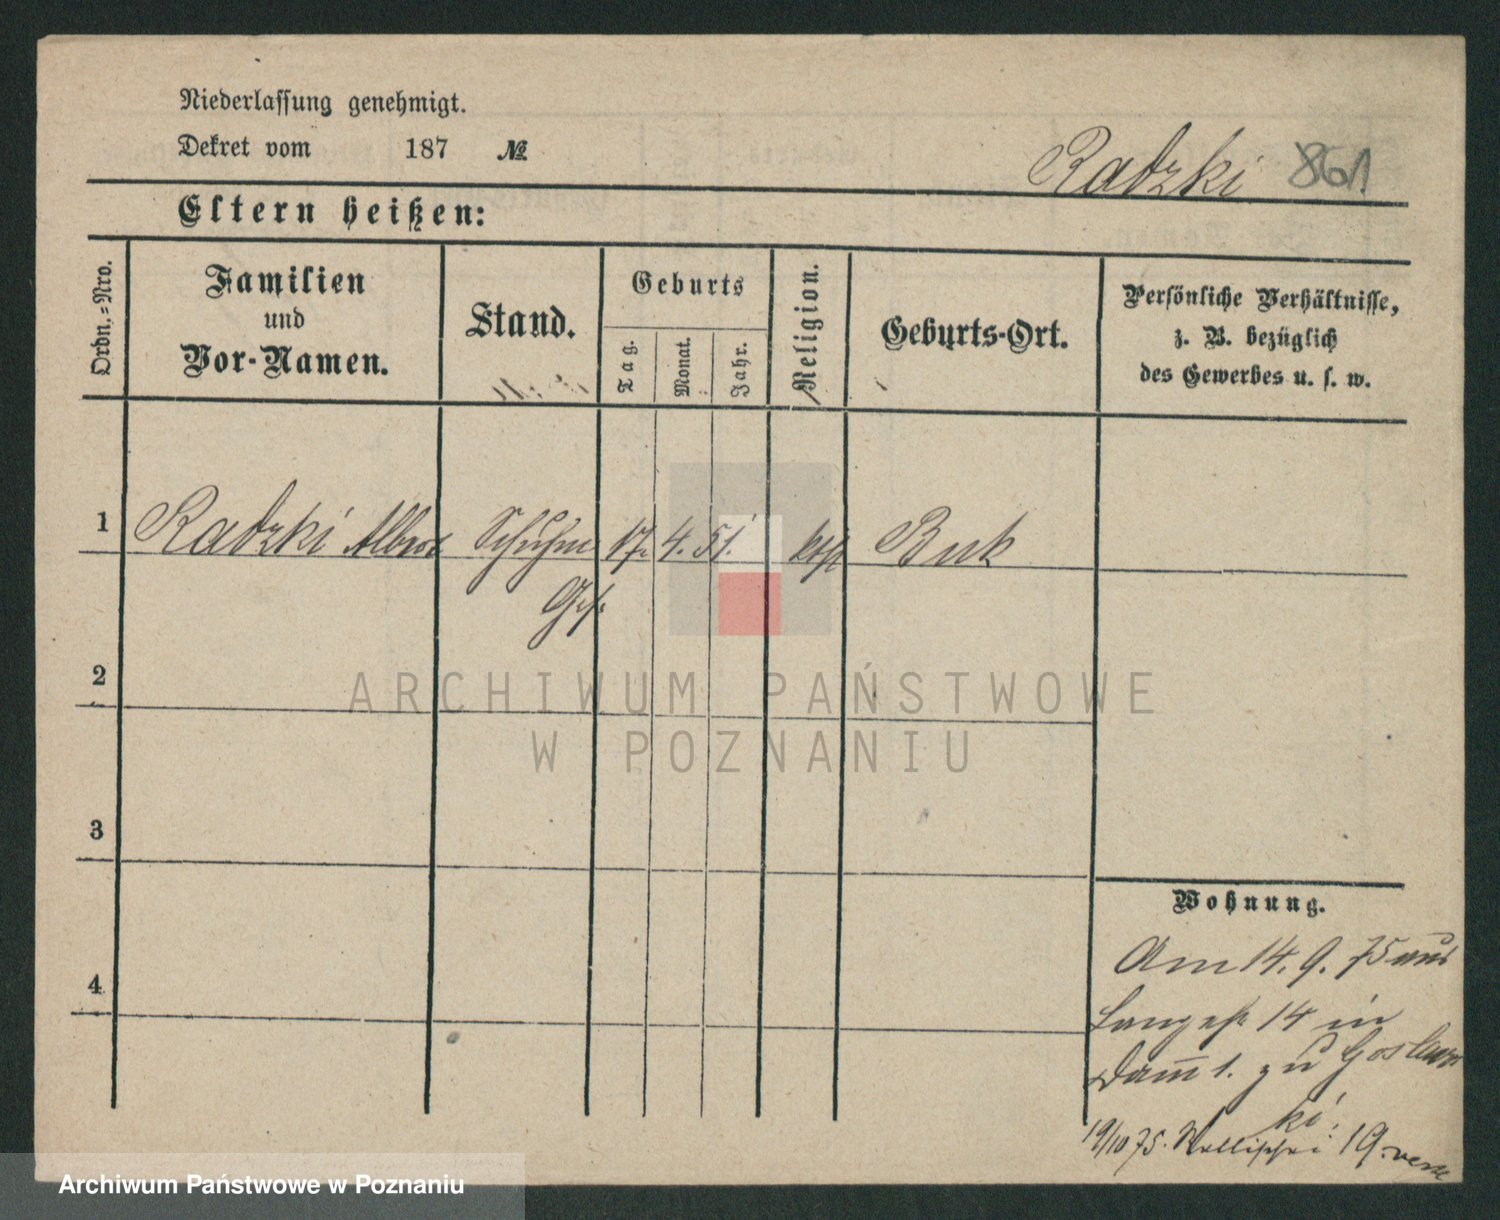 Niederlassung genehmigt.
Dekret vom 187 №
Radzki 861.
Eltern heißen:
Ordn.=Nro.
Familien
und
Vor-Namen.
Stand.
Geburts
Tag.
Monat.
Jahr.
Religion.
Geburts-Ort.
Persönliche Verhältnisse,
z. B. bezüglich
des Gewerbes u. s. w.
1 Radzki Schuhm 17. 4. 51. kth Buk
Ges.
2
3
4
Wohnung.
Am 14. 9. 75 aus
Langestr 14 in
Dam̅ 1. zu Goslaw
ki.
19/10 75. 19.
ARCHIWUM PAŃSTWOWE
W POZNANIU
Archiwum Państwowe w Poznaniu